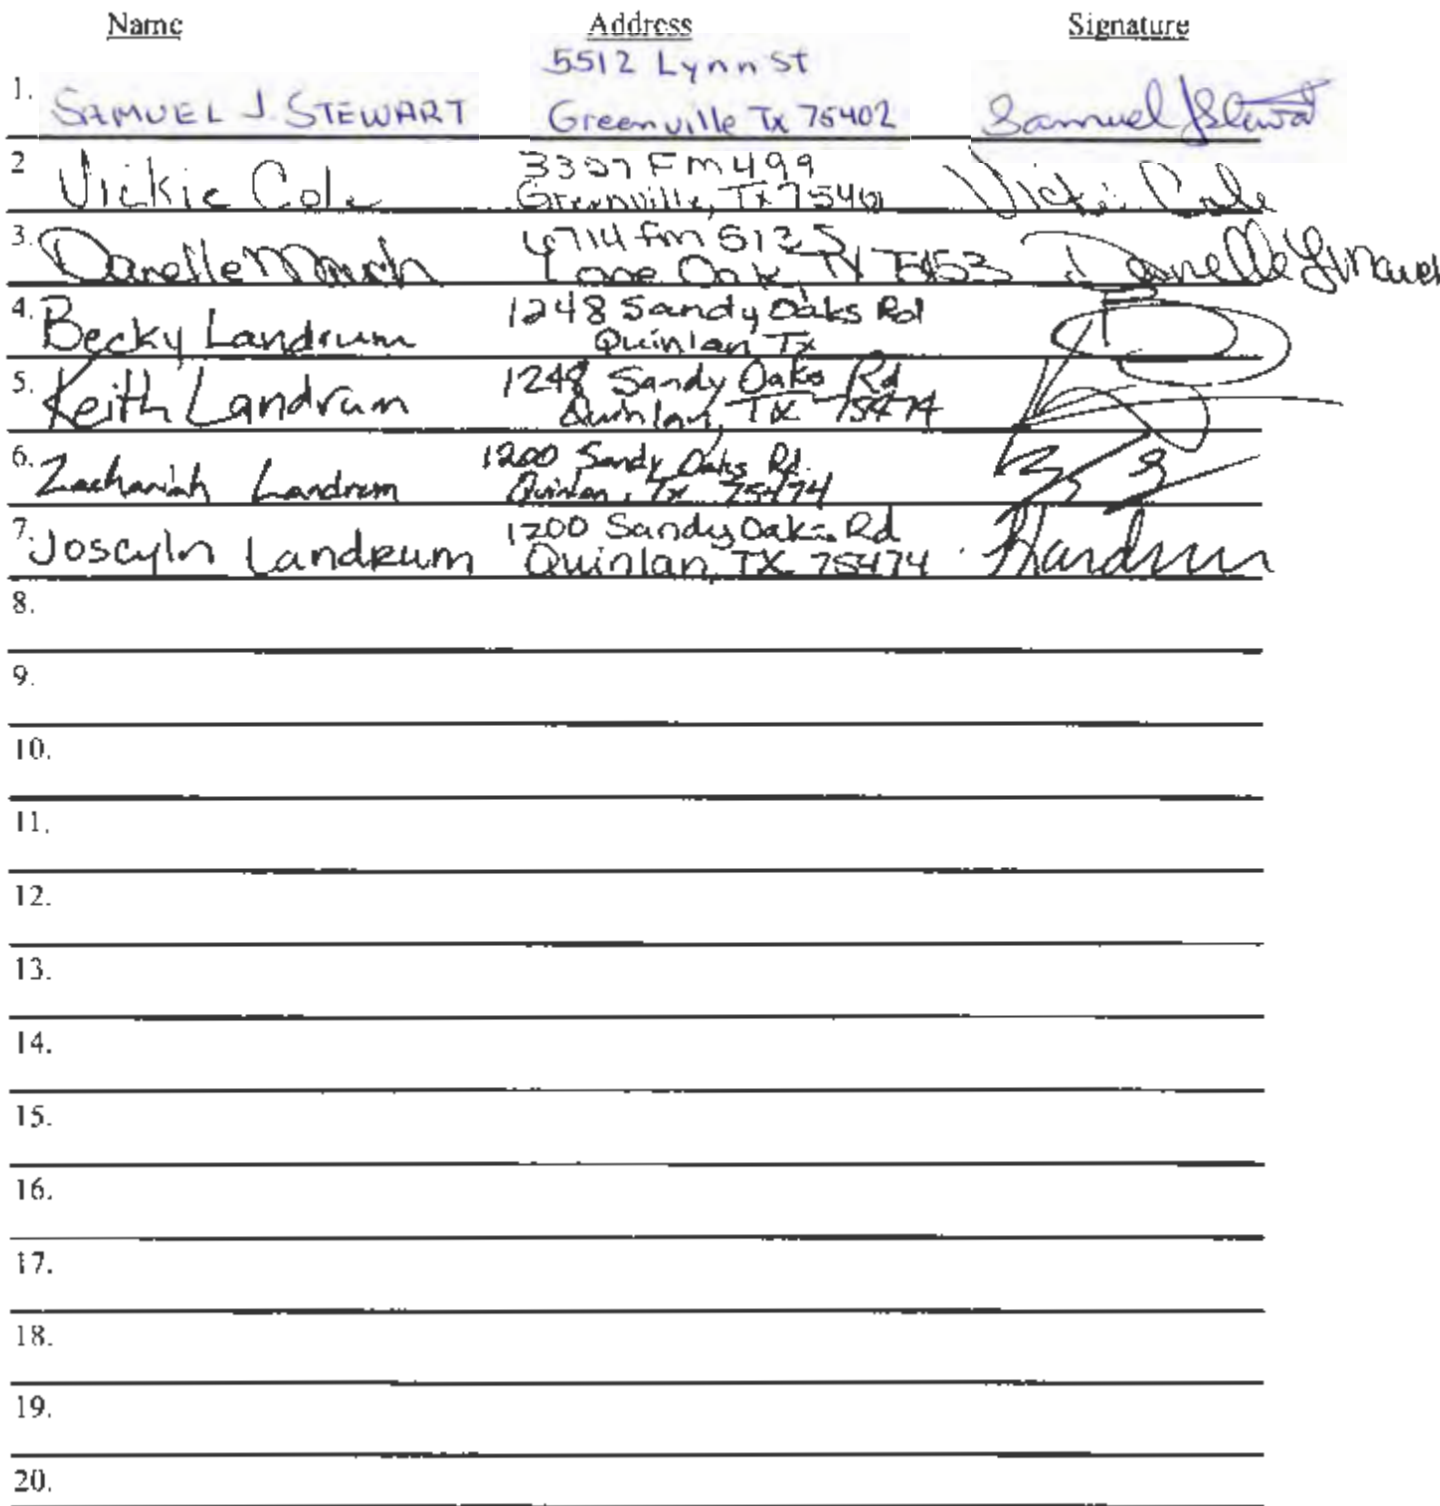 Name Address Signature
5512 Lynn St
1. SAMUEL J. STEWART Greenville Tx 75402 Samuel J Stewart
2 Vickie Cole Greenville, Tx 75401 Vickie Cole
FM 499
3. Danelle 512 S
Lone Oak Tx 75453 Danelle
4. Becky Landrum 1248 Sandy Oaks Rd
Quinlan Tx
5. Keith Landrum 1248 Sandy Oaks Rd
Quinlan, TX 75474
6. Zachariah Landrum 1200 Sandy Oaks Rd.
Quinlan, Tx 75474
7. Joscyln Landrum 1200 Sandy Oaks Rd
Quinlan, TX 75474
8.
9.
10.
11.
12.
13.
14.
15.
16.
17.
18.
19.
20.